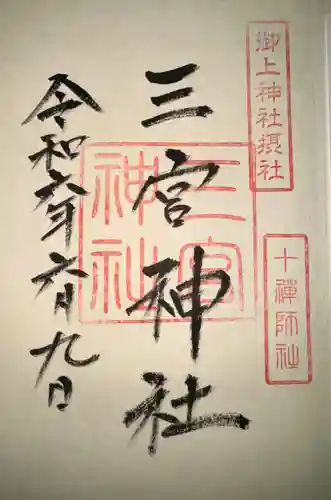 御上神社摂社
十禅師社
三宮神社
三宮神社
令和六年六月九日